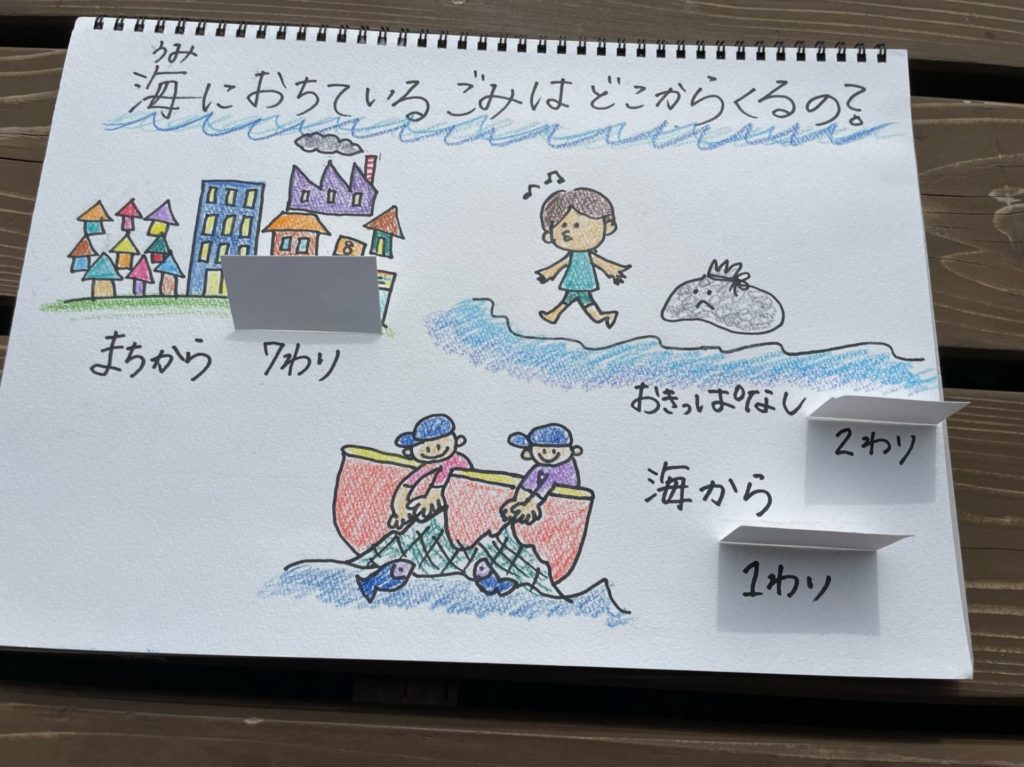 うみ
海におちているごみはどこからくるの?
8
まちから 7わり
おきっぱなし
2わり
海から
1わり